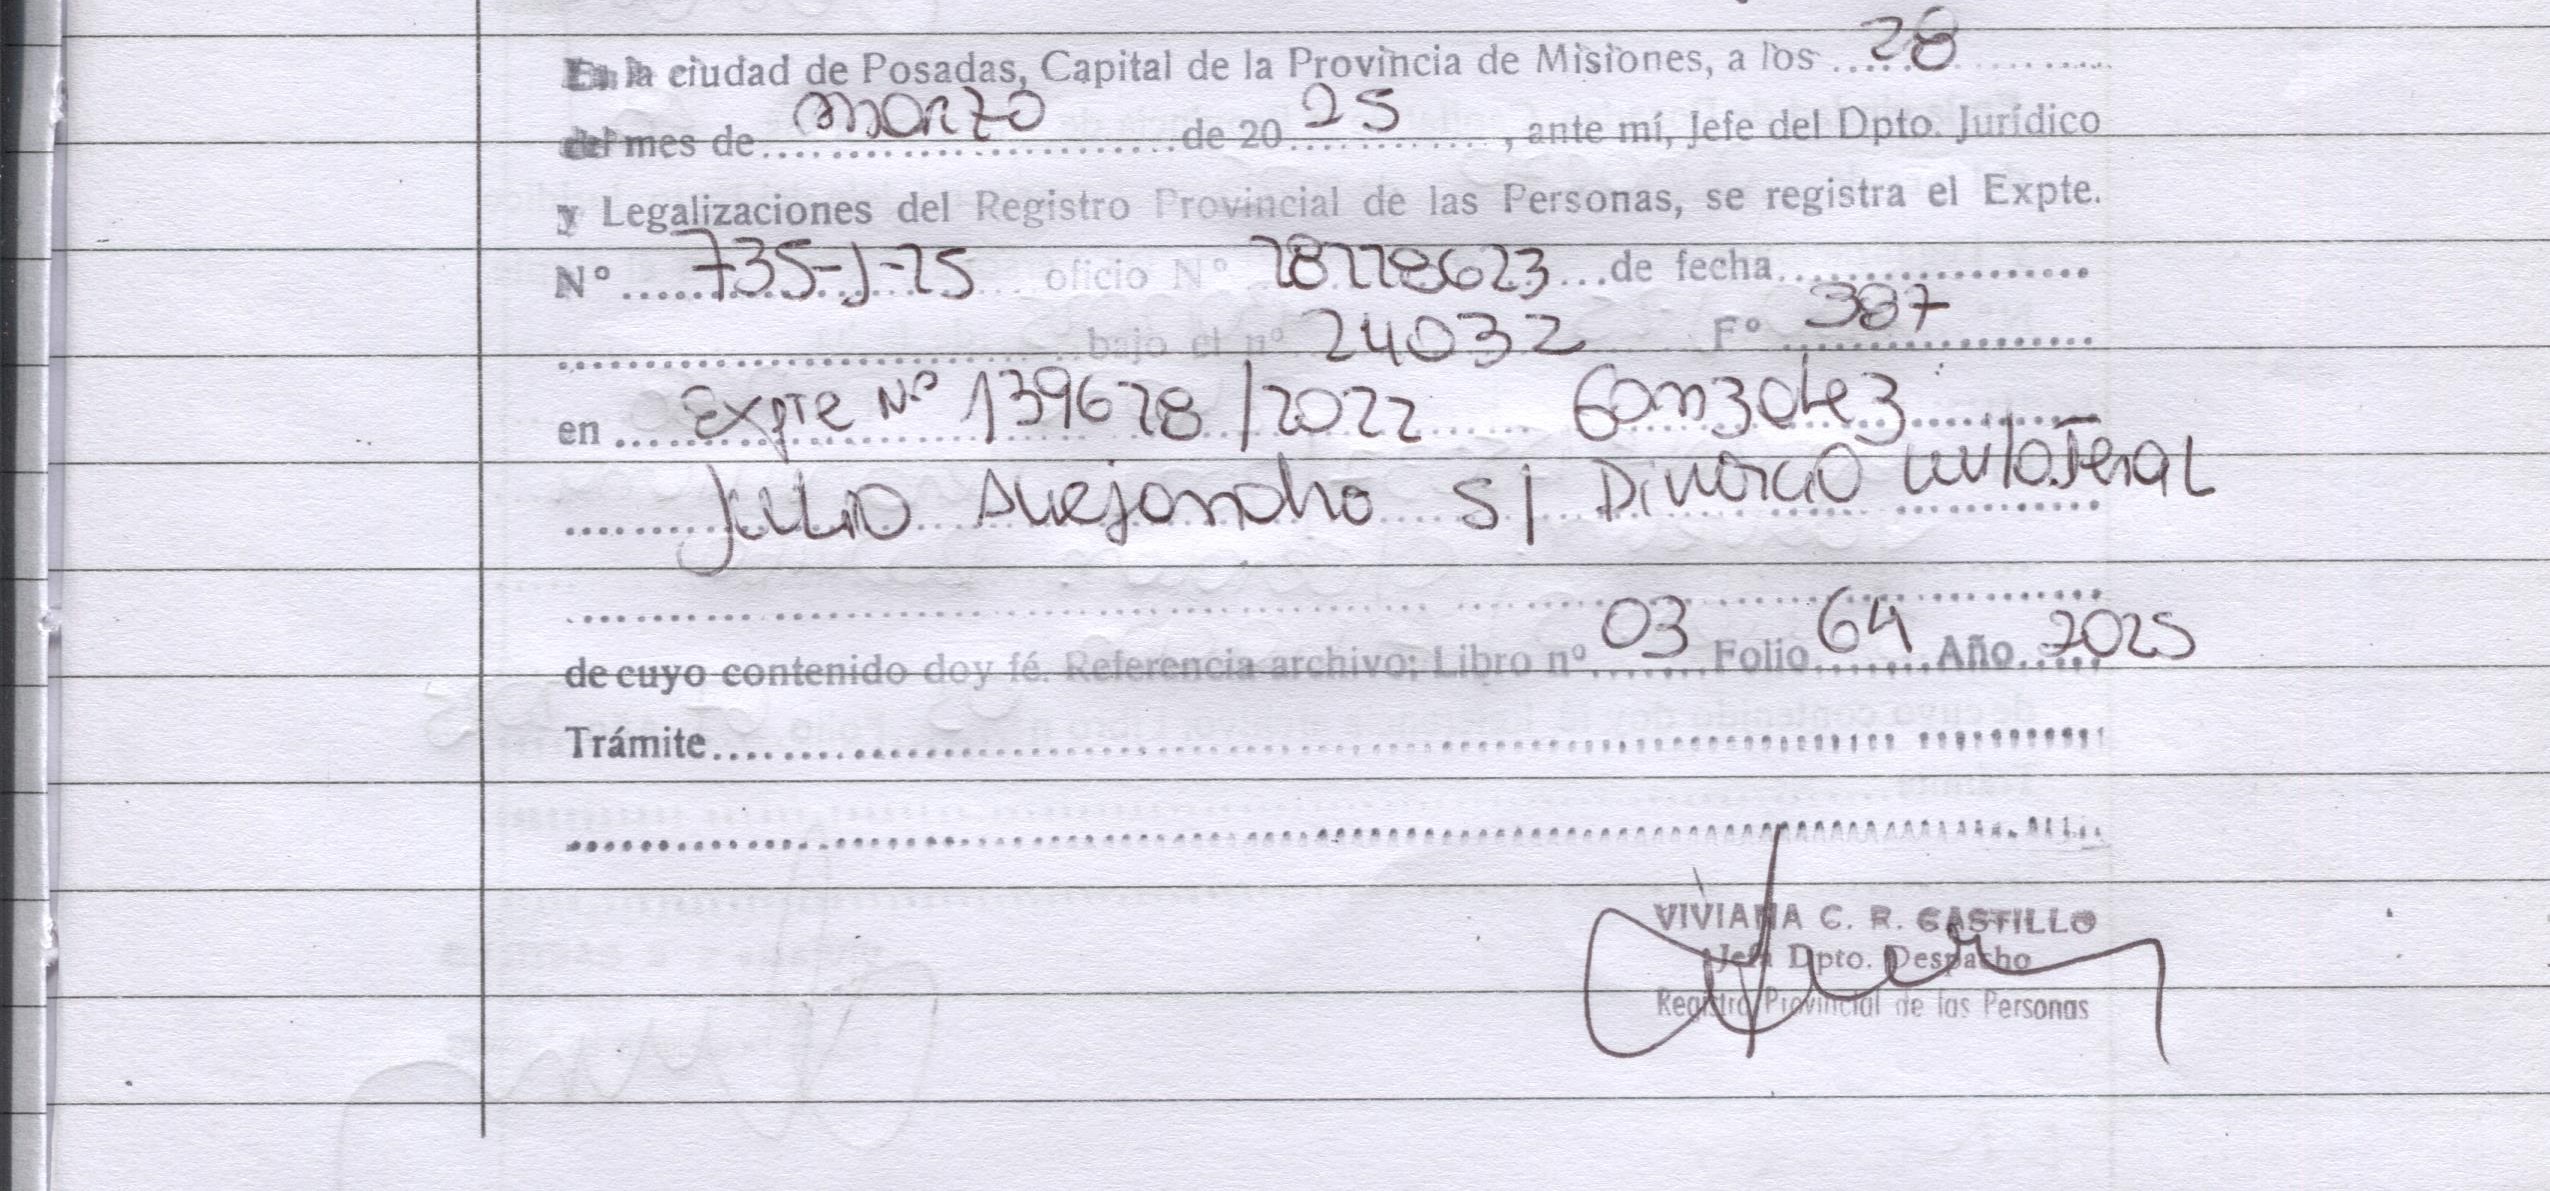 En la ciudad de Posadas, Capital de la Provincia de Misiones, a los 28
del mes de marzo de 20 25, ante mí, Jefe del Dpto. Jurídico
y Legalizaciones del Registro Provincial de las Personas, se registra el Expte.
Nº 735-J-25 oficio Nº 28228623 de fecha
bajo el nº 24032 Fº 387
en Expte Nº 139628/2022 Gonzalez
Julio Alejandro S/ Divorcio unilateral
de cuyo contenido doy fé. Referencia archivo: Libro nº 03 Folio 64 Año 2025
Trámite
VIVIANA C. R. CASTILLO
Jefa Dpto. Despacho
Registro Provincial de las Personas